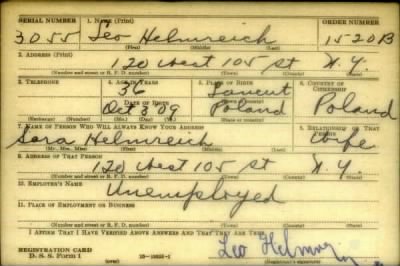 SERIAL NUMBER 1. NAME (Print) ORDER NUMBER
3055 Leo Helmreich 15203
(First) (Middle) (Last)
2. ADDRESS (Print)
120 West 105 St N.Y.
(Number and street or R. F. D. number) (Town) (County) (State)
3. TELEPHONE 4. AGE IN YEARS 5. PLACE OF BIRTH 6. COUNTRY OF CITIZENSHIP
36 Lancut
DATE OF BIRTH
Oct 3 09 Poland Poland
(Exchange) (Number) (Mo.) (Day) (Yr.) (State or country)
7. NAME OF PERSON WHO WILL ALWAYS KNOW YOUR ADDRESS RELATIONSHIP OF THAT PERSON
Sara Helmreich Wife
(Mr. Mrs. Miss) (First) (Middle) (Last)
9. ADDRESS OF THAT PERSON
120 West 105 St N.Y.
(Number and street or R. F. D. number) (Town) (County) (State)
10. EMPLOYER'S NAME
Unemployed
11. PLACE OF EMPLOYMENT OR BUSINESS
(Number and street or R. F. D. number) (Town) (County) (State)
I AFFIRM THAT I HAVE VERIFIED ABOVE ANSWERS AND THAT THEY ARE TRUE.
REGISTRATION CARD
D. S. S. Form 1 Leo
(over) (Registrant's signature)